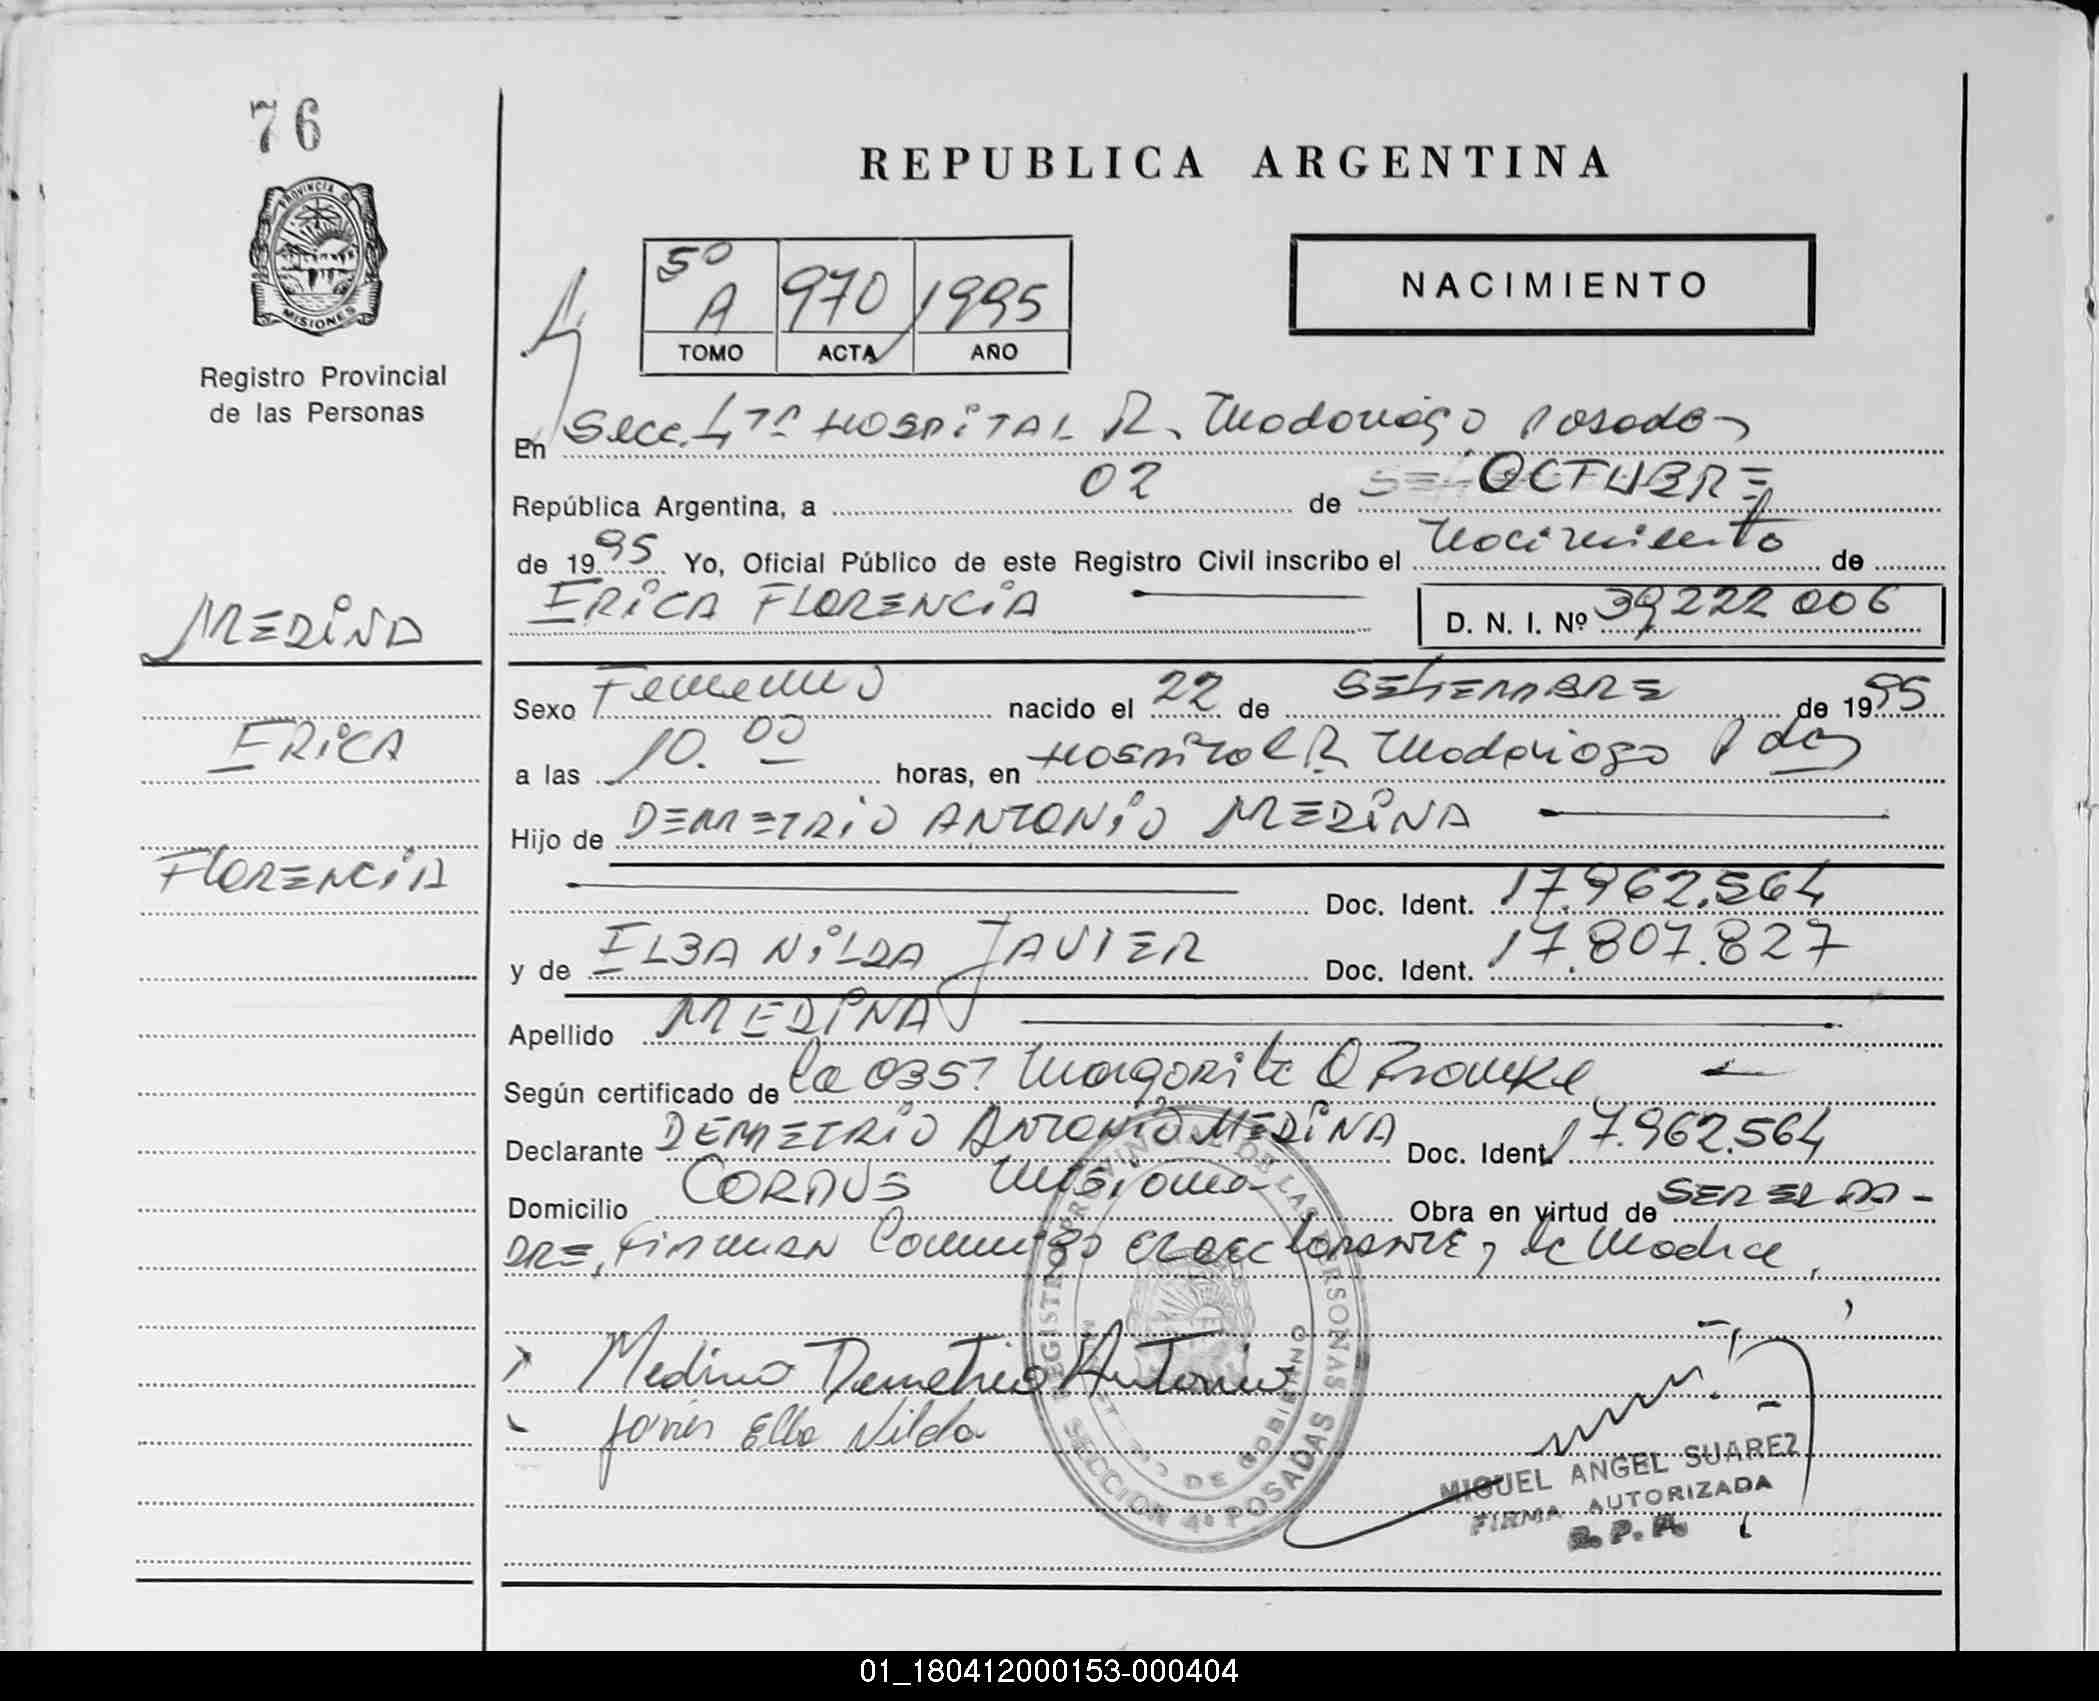 76
PROVINCIA D
MISIONES
Registro Provincial
de las Personas
REPUBLICA ARGENTINA
5º A 970 1995
TOMO ACTA AÑO
NACIMIENTO
En Secc. 4ta HOSPITAL R. Madariaga Posadas
República Argentina, a 02 de OCTUBRE
de 1995 Yo, Oficial Público de este Registro Civil inscribo el Nacimiento de
ERICA FLORENCIA D. N. I. Nº 39222006
MEDINA
Sexo Femenino nacido el 22 de SETIEMBRE de 1995
ERICA
a las 10.00 horas, en HOSPITAL R. Madariaga Pdas
Hijo de DEMETRIO ANTONIO MEDINA
FLORENCIA
Doc. Ident. 17.962.564
y de ELBA NILDA JAVIER Doc. Ident. 17.807.827
Apellido MEDINA
Según certificado de la OBST Margarita Q Franke
Declarante DEMETRIO ANTONIO MEDINA Doc. Ident. 17.962.564
Domicilio CORPUS Misiones Obra en virtud de SER EL PA-
DRE, Firman Conmigo el declarante y la Madre,
Medina Demetrio Antonio
Javier Elba Nilda
REGISTRO PROVINCIAL DE LAS PERSONAS
DE GOBIERNO
SECCION 4ª POSADAS
MIGUEL ANGEL SUAREZ
FIRMA AUTORIZADA
R. P. P.
01_180412000153-000404